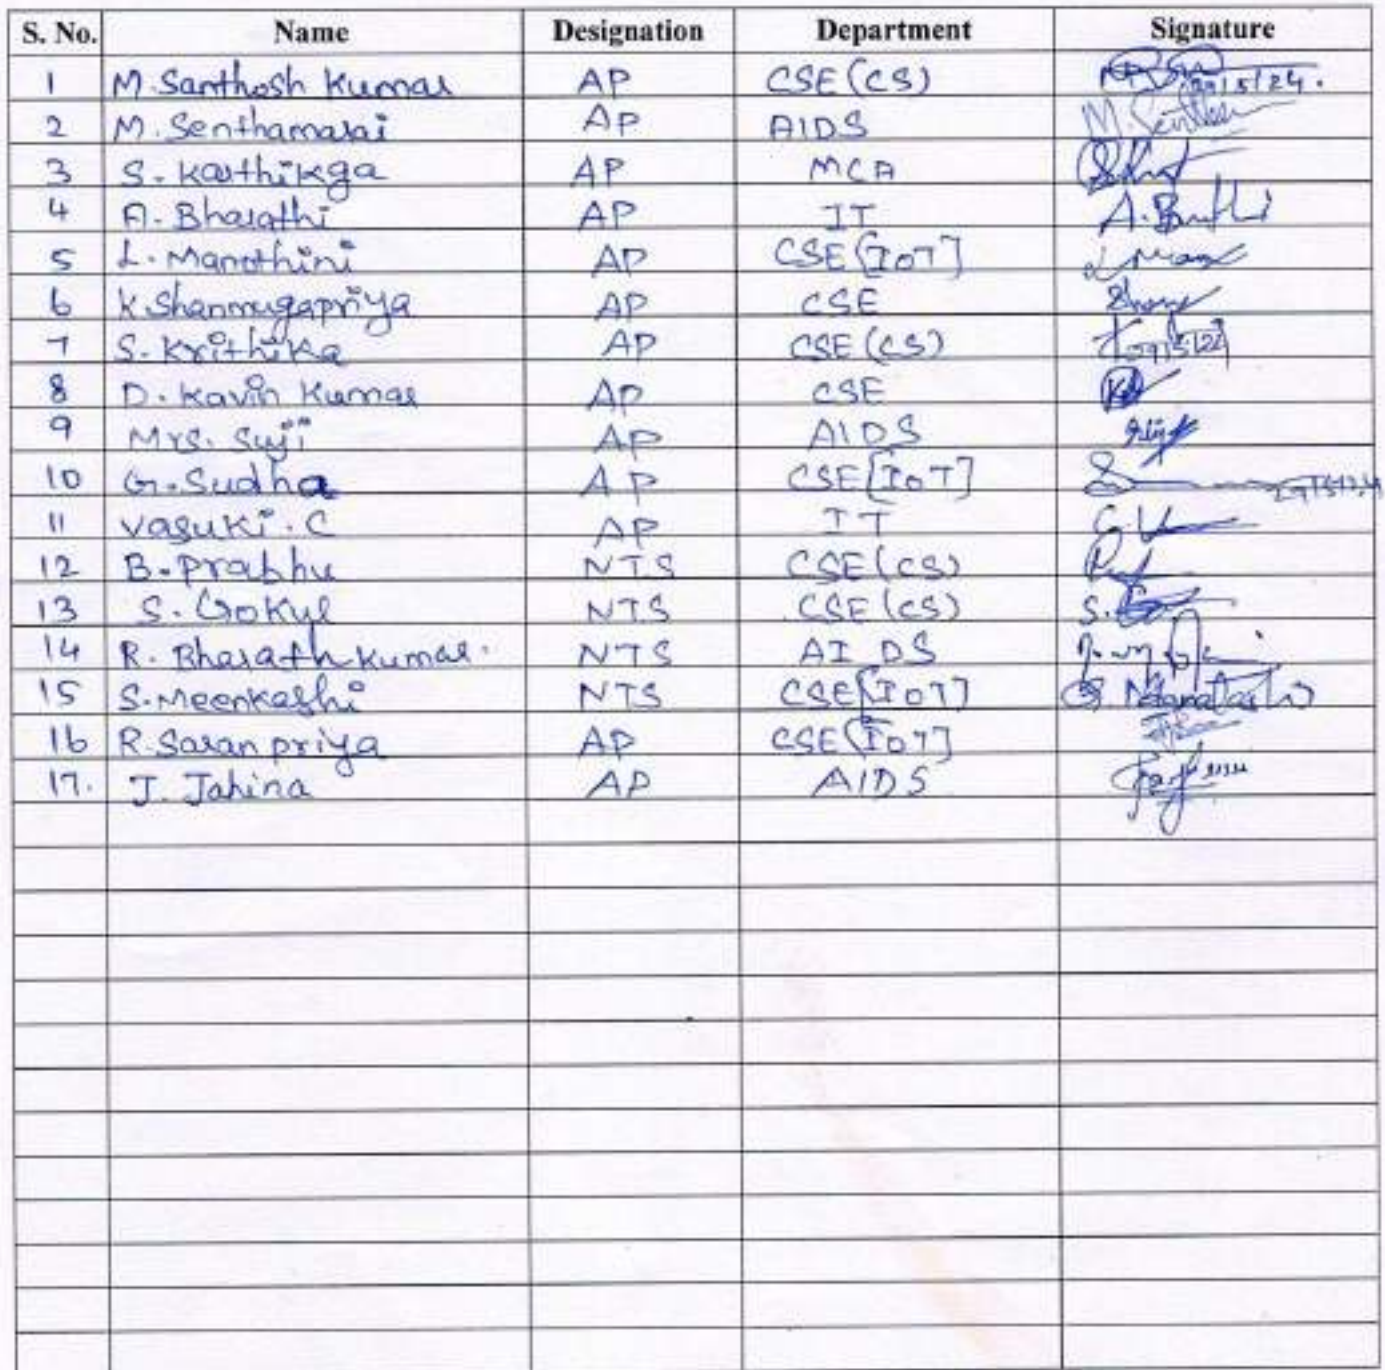 S. No. Name Designation Department Signature
1 M. Santhosh Kumar AP CSE (CS) 29/5/24.
2 M. Senthamarai AP AIDS
3 S. Karthikga AP MCA
4 A. Bharathi AP IT
5 L. Manothini AP CSE [IoT]
6 K. Shanmugapriya AP CSE
7 S. Krithika AP CSE (CS) 29/5/24
8 D. Kavin Kumar AP CSE
9 Mrs. Suji AP AIDS
10 G. Sudha AP CSE [IoT]
11 Vasuki. C AP IT
12 B. Prabhu NTS CSE (CS)
13 S. Gokul NTS CSE (CS)
14 R. Bharath Kumar. NTS AI DS
15 S. Meenkashi NTS CSE [IoT]
16 R. Saran priya AP CSE [IoT]
17. J. Jahina AP AIDS